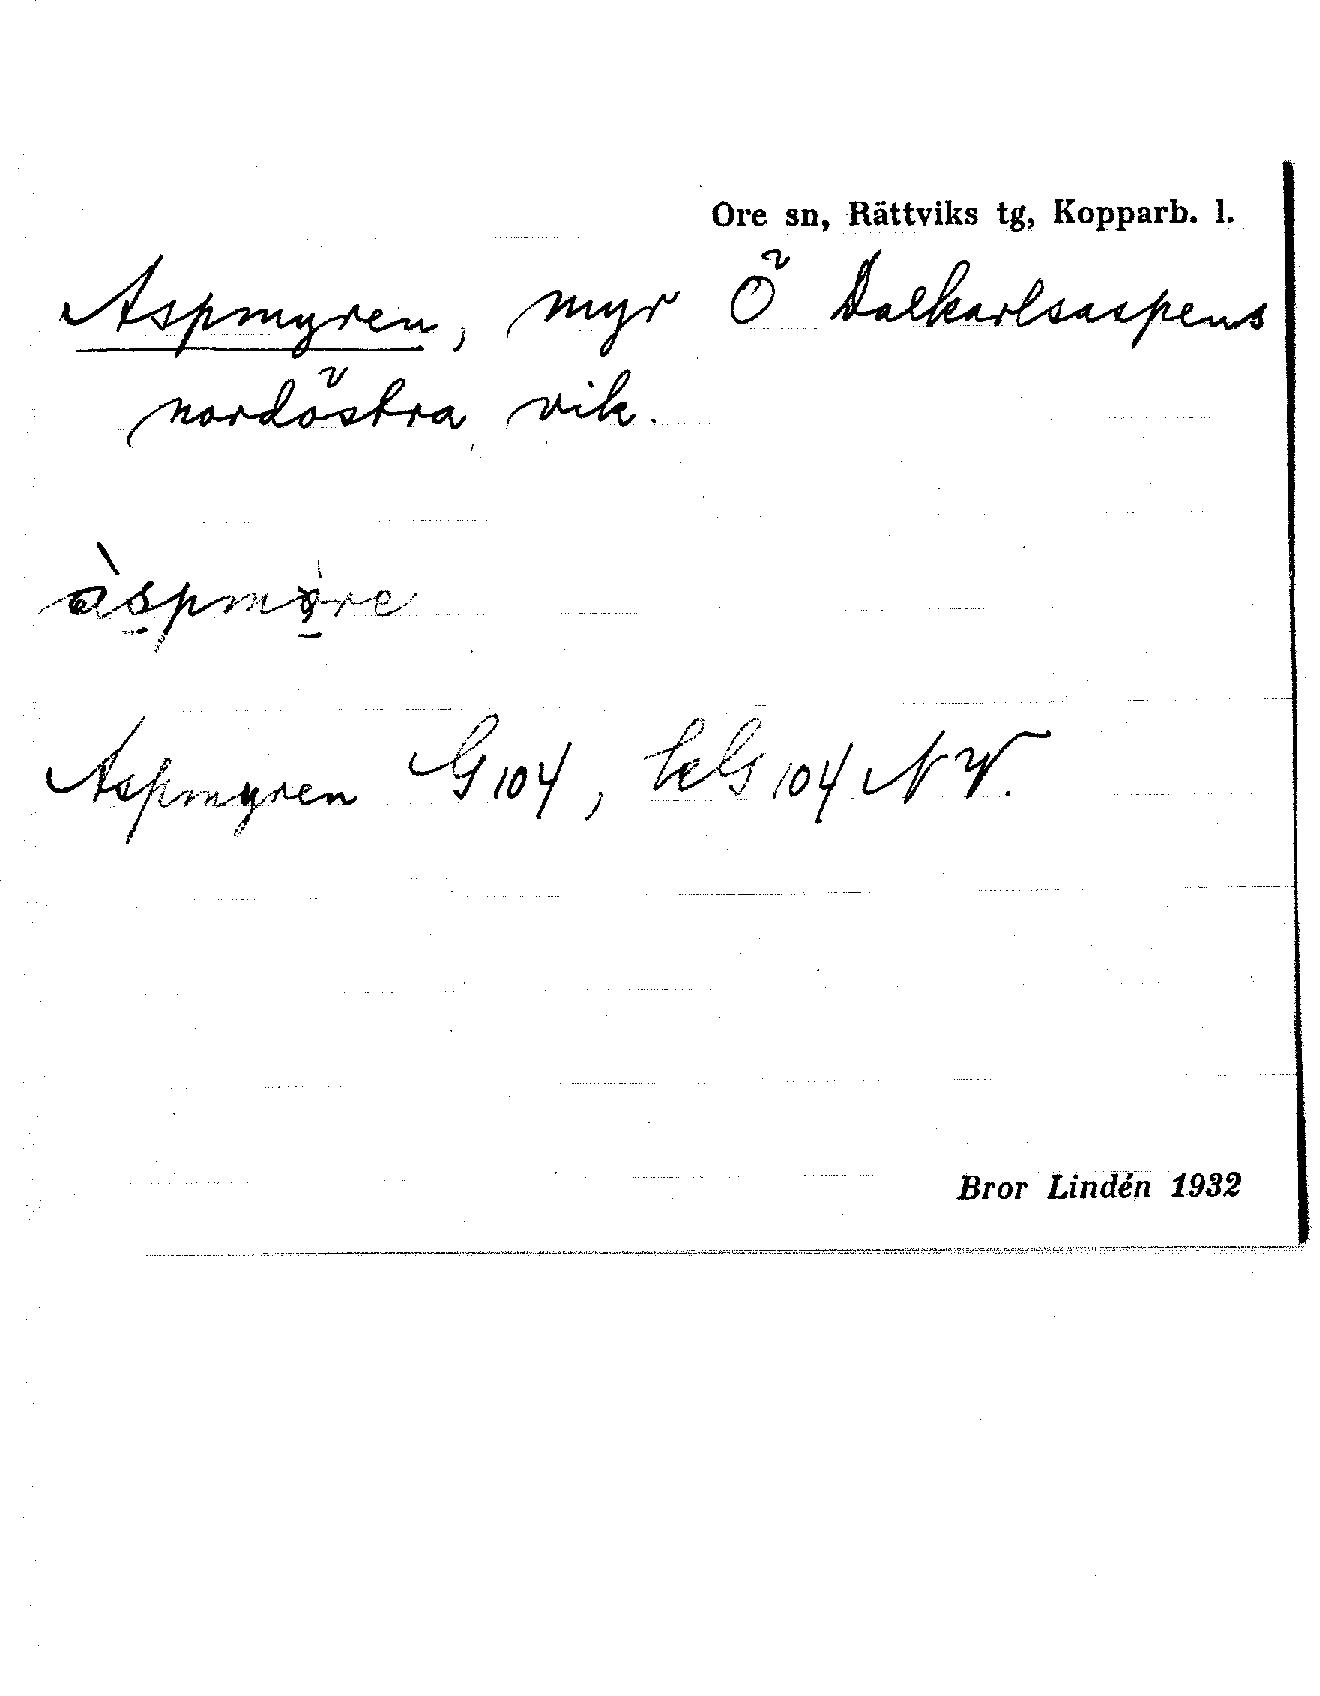 Ore sn, Rättviks tg, Kopparb. l.
Aspmyren, myr Ö Dalkarlsaspens
nordöstra vik.
Aspmyren G 104, kG 104 NV.
Bror Lindén 1932